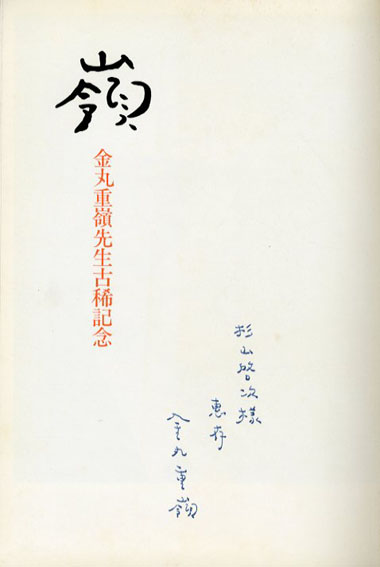 嶺
金丸重嶺先生古稀記念
杉山啓次様
恵存
金丸重嶺